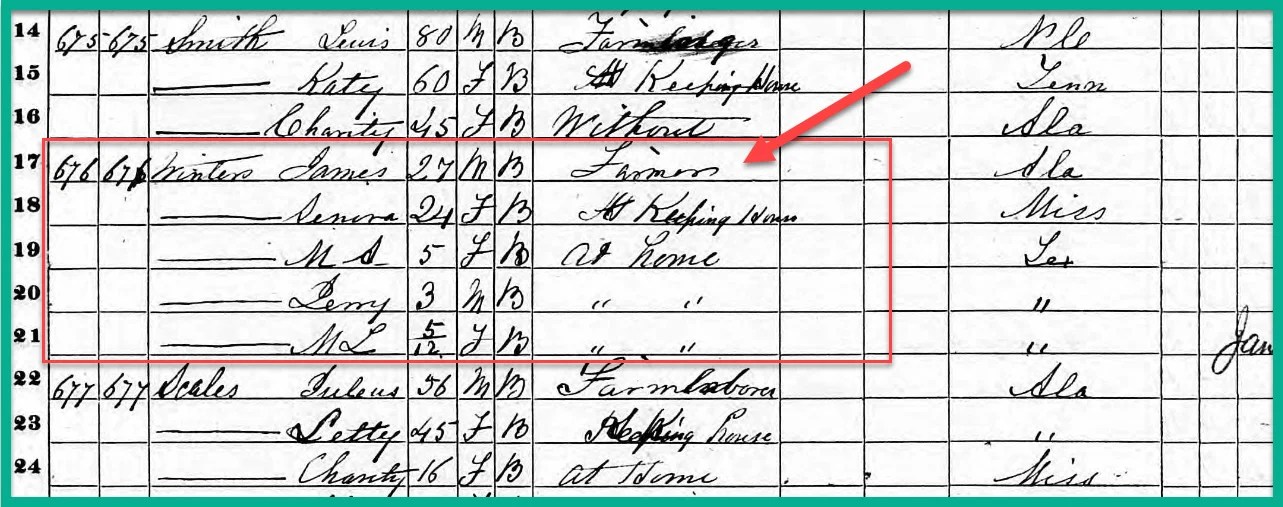 14 675 675 Smith Lewis 80 M B N C
15 —— Katy 60 F B At Keeping House Tenn
16 —— Charity 45 F B Without Ala
17 676 676 Winters James 27 M B Farmers Ala
18 —— Senora 24 F B At Keeping House Miss
19 —— M A 5 F B at home Tex
20 —— Perry 3 M B " " "
21 —— M L 5/12 F B " " " Jan
22 677 677 Scales Juleus 56 M B Farm laborer Ala
23 —— Letty 45 F B Keeping house "
24 —— Charity 16 F B at Home Miss